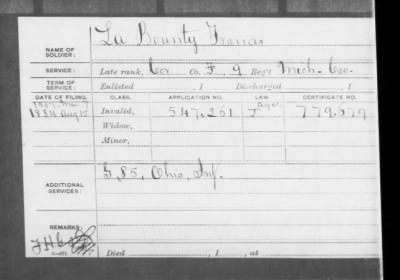 La Bounty Francis
NAME OF SOLDIER:
SERVICE: Late rank, Co. F, 9 Reg't Mich. Cav.
TERM OF SERVICE: Enlisted , 1 Discharged , 1
DATE OF FILING. CLASS. APPLICATION NO. LAW. CERTIFICATE NO.
1884 Aug 15 Invalid, 547.261 J 779.679
Widow,
Minor,
ADDITIONAL SERVICES: G, 85, Ohio, Inf.
REMARKS:
Died , 1 , at